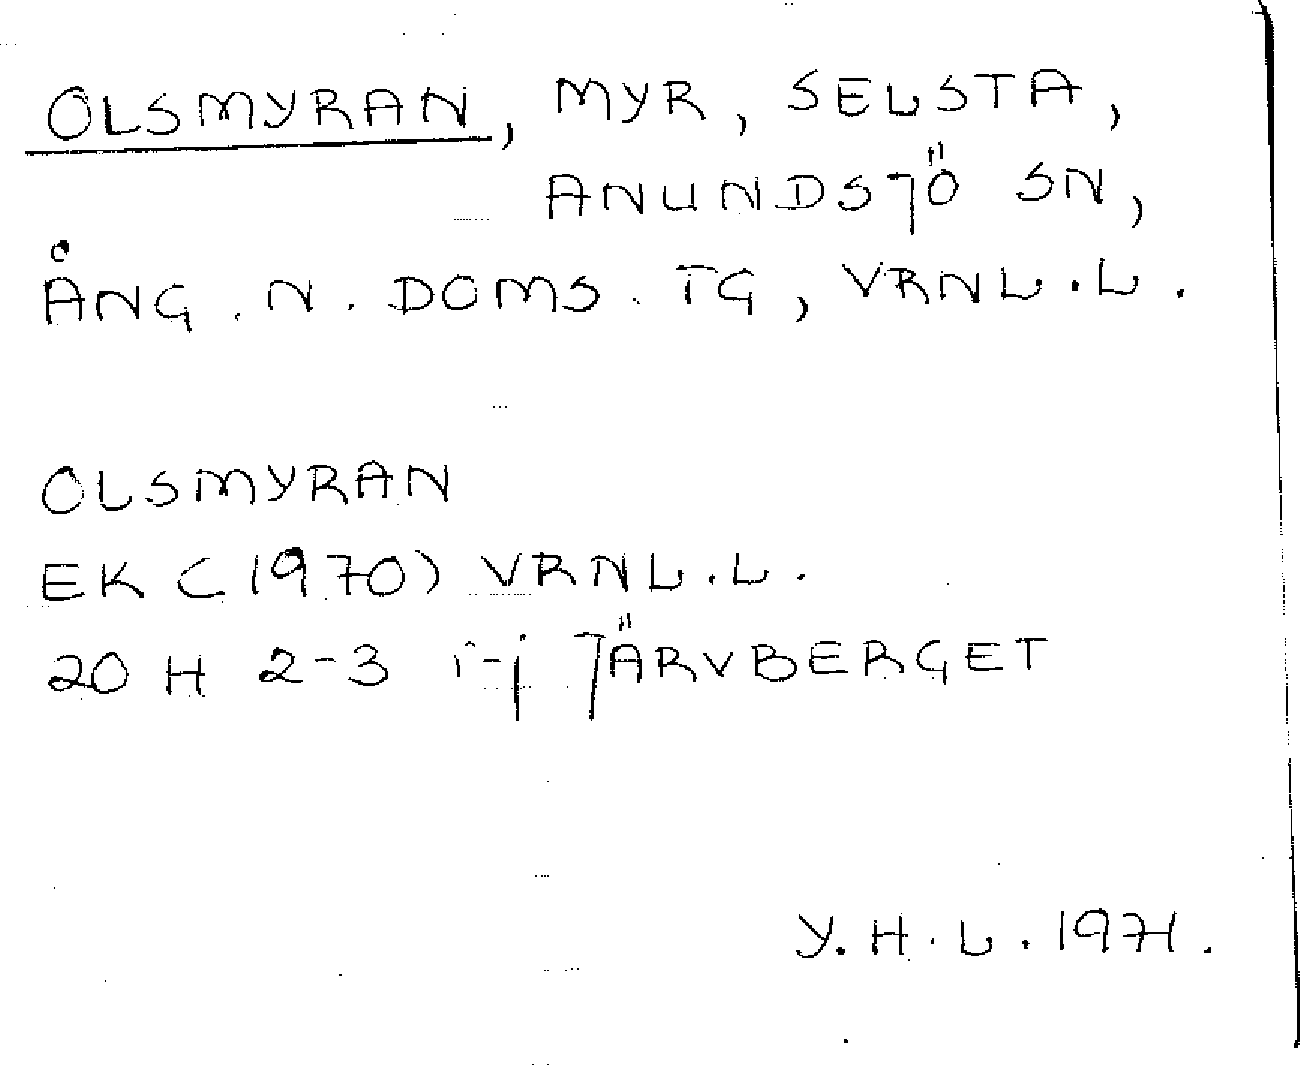 OLSMYRAN, MYR, SELSTA,
ANUNDSJÖ SN,
ÅNG. N. DOMS. TG, VRNL.L.
OLSMYRAN
EK (1970) VRNL.L.
20 H 2-3 i-j JÄRVBERGET
Y.H.L. 1971.